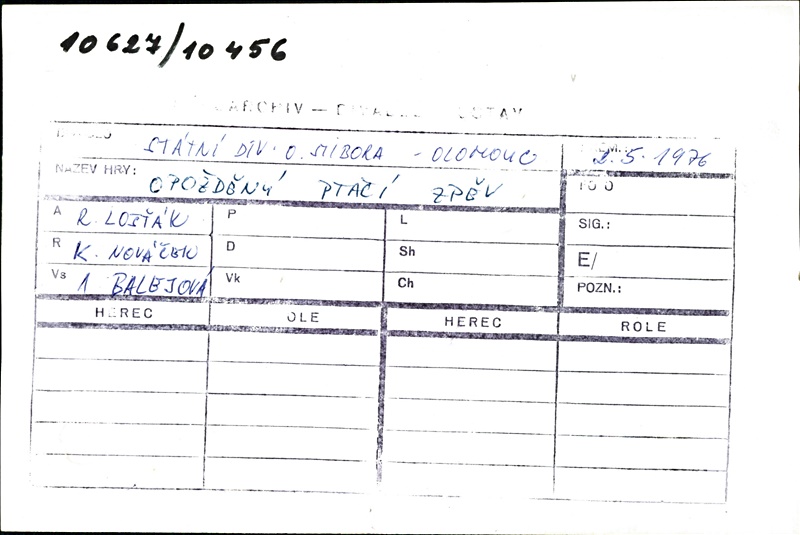 10627/10456
ARCHIV —
STÁTNÍ DIV. O. STIBORA - OLOMOUC
2.5.1976
NÁZEV HRY: OPOŽDĚNÝ PTAČÍ ZPĚV
A R. LOŠŤÁK P L SIG.:
R K. NOVÁČEK D Sh E/
Vs 1 BALEJOVÁ Vk Ch POZN.:
HEREC OLE HEREC ROLE